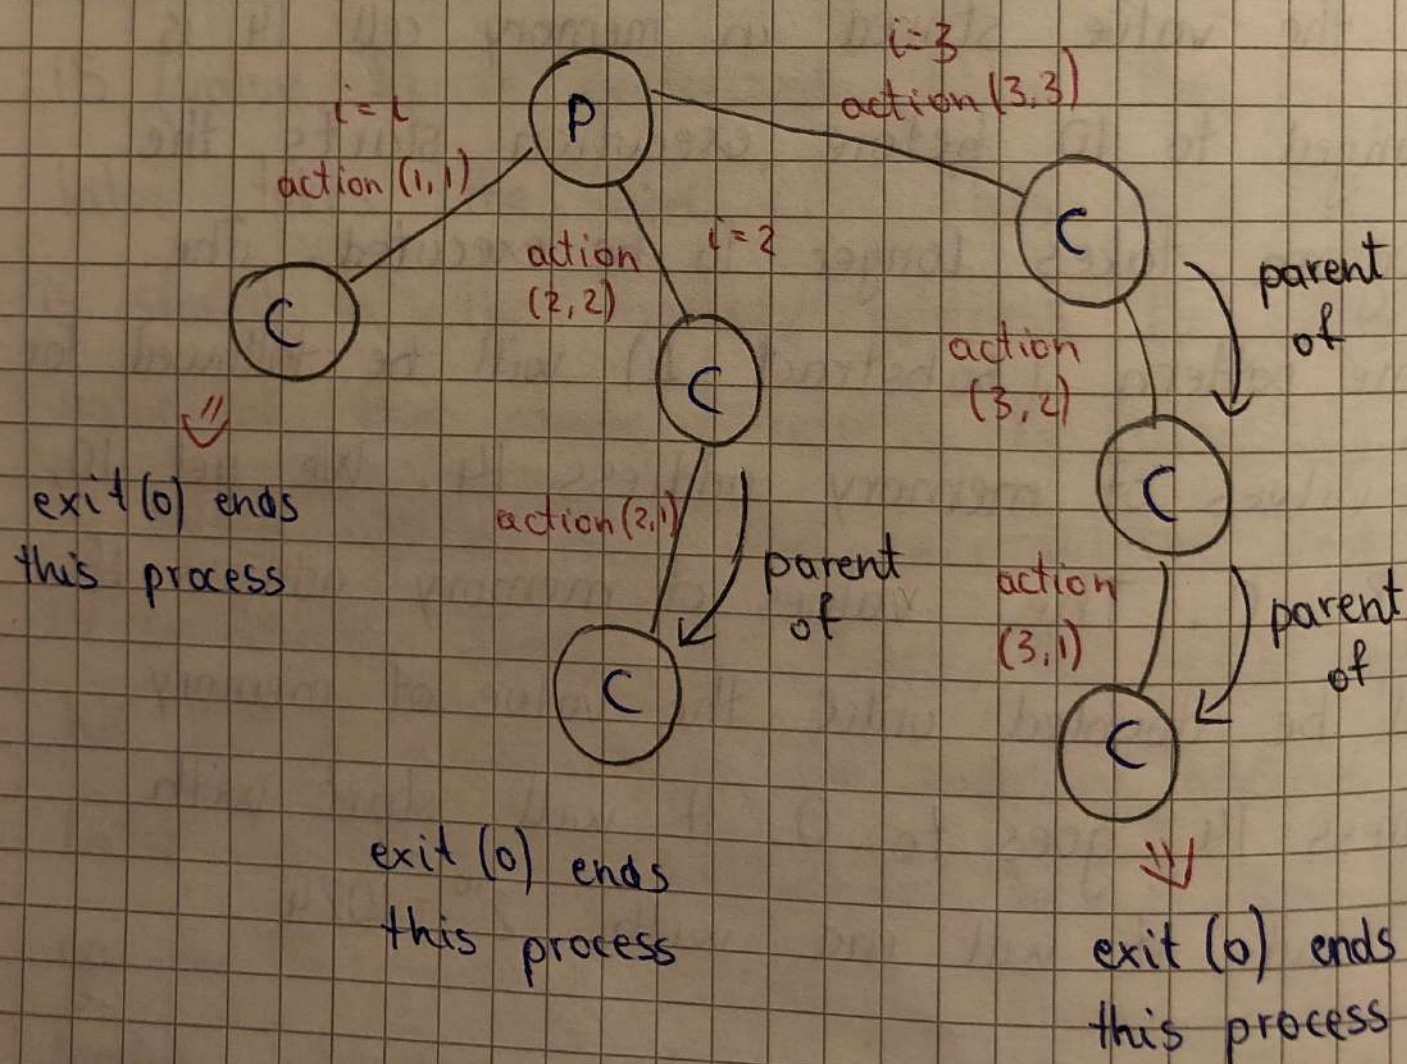 i=3
action (3,3)
P
i=1
action (1,1)
C
action
(2,2)
i=2
C
parent
of
C
action
(3,2)
C
exit(0) ends
this process
action (2,1)
C
parent
of
action
(3,1)
C
parent
of
C
exit (0) ends
this process
C
exit (0) ends
this process